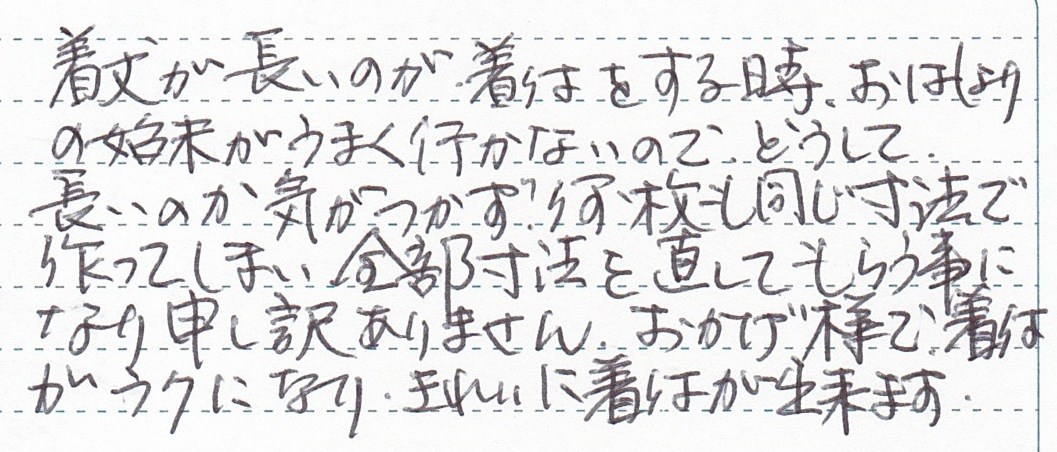 着丈が長いのが着付をする時、おはしょり
の始末がうまく行かないので、どうして、
長いのか気がつかず、何枚も同じ寸法で
作ってしまい全部寸法を直してもらう事に
なり申し訳ありません。おかげ様で、着付
がラクになり、きれいに着付が出来ます。